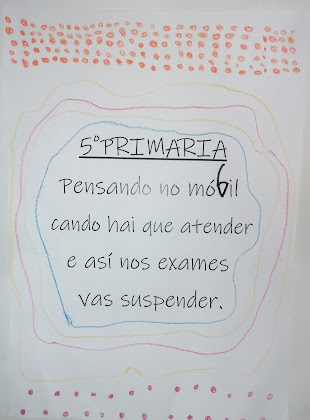 5ºPRIMARIA
Pensando no móbil
cando hai que atender
e así nos exames
vas suspender.